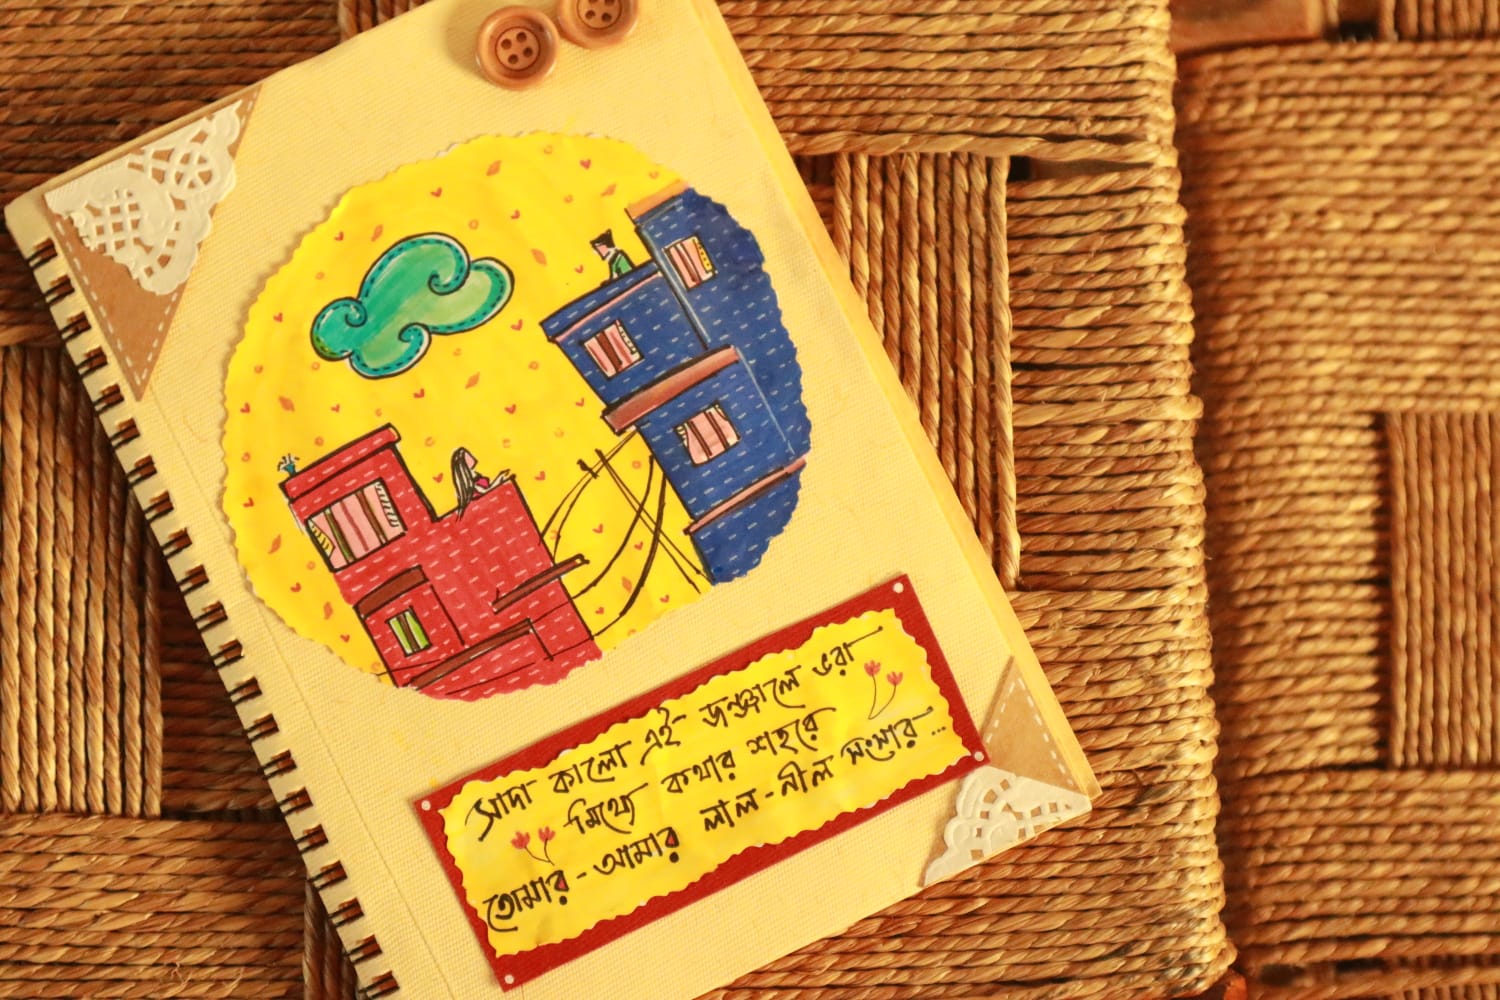 সাদা কালো এই জঞ্জালে ভরা
মিথ্যে কথার শহরে
তোমার-আমার লাল-নীল সংসার...